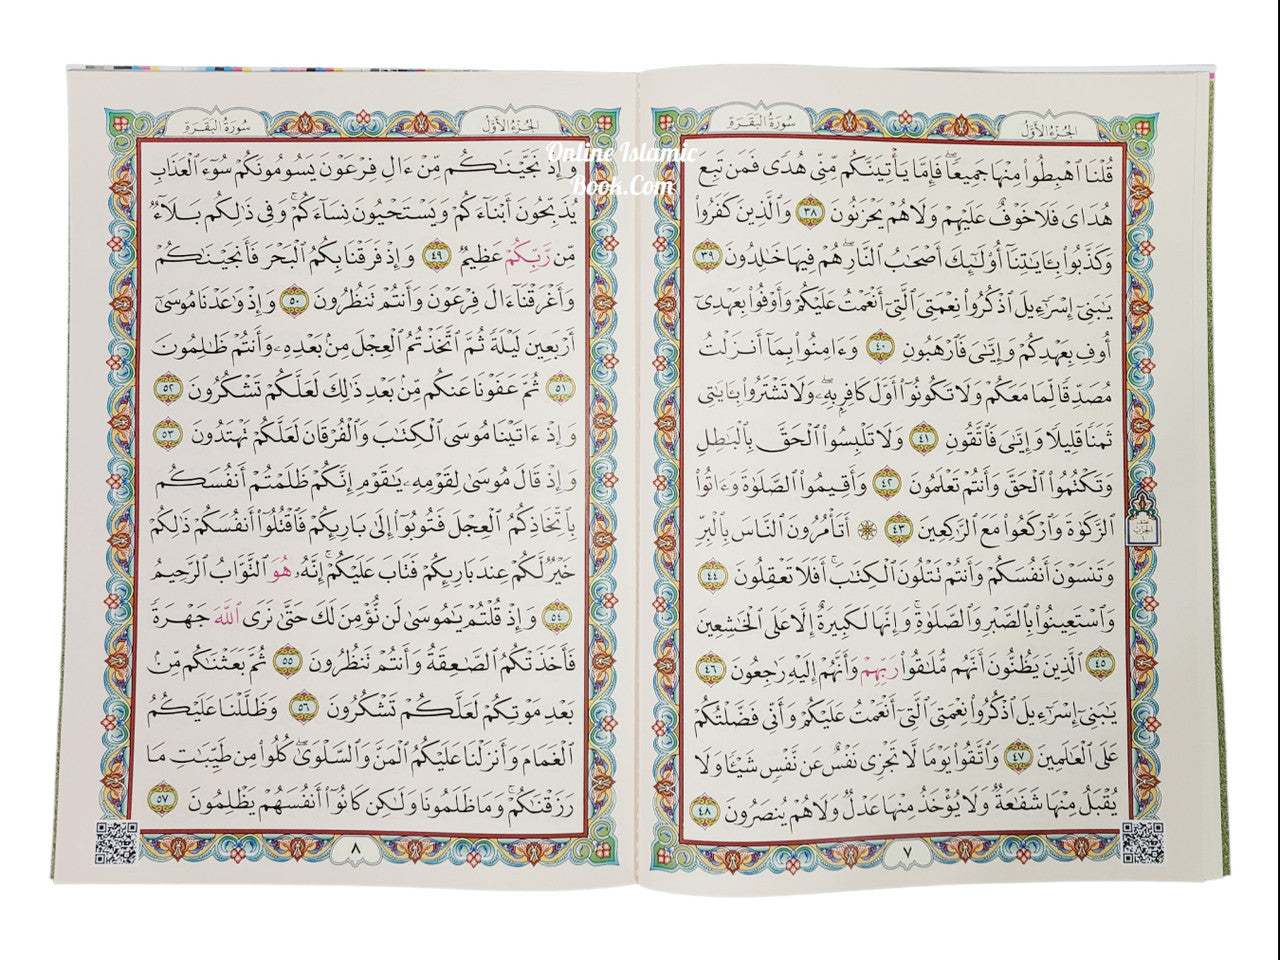 الجزء الأول
سورة البقرة
قُلۡنَا ٱهۡبِطُواْ مِنۡهَا جَمِيعٗاۖ فَإِمَّا يَأۡتِيَنَّكُم مِّنِّي هُدٗى فَمَن تَبِعَ
هُدَايَ فَلَا خَوۡفٌ عَلَيۡهِمۡ وَلَا هُمۡ يَحۡزَنُونَ ٣٨ وَٱلَّذِينَ كَفَرُواْ
وَكَذَّبُواْ بِـَٔايَٰتِنَآ أُوْلَٰٓئِكَ أَصۡحَٰبُ ٱلنَّارِۖ هُمۡ فِيهَا خَٰلِدُونَ ٣٩
يَٰبَنِيٓ إِسۡرَٰٓءِيلَ ٱذۡكُرُواْ نِعۡمَتِيَ ٱلَّتِيٓ أَنۡعَمۡتُ عَلَيۡكُمۡ وَأَوۡفُواْ بِعَهۡدِيٓ
أُوفِ بِعَهۡدِكُمۡ وَإِيَّٰيَ فَٱرۡهَبُونِ ٤٠ وَءَامِنُواْ بِمَآ أَنزَلۡتُ
مُصَدِّقٗا لِّمَا مَعَكُمۡ وَلَا تَكُونُوٓاْ أَوَّلَ كَافِرِۭ بِهِۦۖ وَلَا تَشۡتَرُواْ بِـَٔايَٰتِي
ثَمَنٗا قَلِيلٗا وَإِيَّٰيَ فَٱتَّقُونِ ٤١ وَلَا تَلۡبِسُواْ ٱلۡحَقَّ بِٱلۡبَٰطِلِ
وَتَكۡتُمُواْ ٱلۡحَقَّ وَأَنتُمۡ تَعۡلَمُونَ ٤٢ وَأَقِيمُواْ ٱلصَّلَوٰةَ وَءَاتُواْ
ٱلزَّكَوٰةَ وَٱرۡكَعُواْ مَعَ ٱلرَّٰكِعِينَ ٤٣ ۞ أَتَأۡمُرُونَ ٱلنَّاسَ بِٱلۡبِرِّ
وَتَنسَوۡنَ أَنفُسَكُمۡ وَأَنتُمۡ تَتۡلُونَ ٱلۡكِتَٰبَۚ أَفَلَا تَعۡقِلُونَ ٤٤
وَٱسۡتَعِينُواْ بِٱلصَّبۡرِ وَٱلصَّلَوٰةِۚ وَإِنَّهَا لَكَبِيرَةٌ إِلَّا عَلَى ٱلۡخَٰشِعِينَ
٤٥ ٱلَّذِينَ يَظُنُّونَ أَنَّهُم مُّلَٰقُواْ رَبِّهِمۡ وَأَنَّهُمۡ إِلَيۡهِ رَٰجِعُونَ ٤٦
يَٰبَنِيٓ إِسۡرَٰٓءِيلَ ٱذۡكُرُواْ نِعۡمَتِيَ ٱلَّتِيٓ أَنۡعَمۡتُ عَلَيۡكُمۡ وَأَنِّي فَضَّلۡتُكُمۡ
عَلَى ٱلۡعَٰلَمِينَ ٤٧ وَٱتَّقُواْ يَوۡمٗا لَّا تَجۡزِي نَفۡسٌ عَن نَّفۡسٖ شَيۡـٔٗا وَلَا
يُقۡبَلُ مِنۡهَا شَفَٰعَةٞ وَلَا يُؤۡخَذُ مِنۡهَا عَدۡلٞ وَلَا هُمۡ يُنصَرُونَ ٤٨
٧
الجزء الأول
سورة البقرة
وَإِذۡ نَجَّيۡنَٰكُم مِّنۡ ءَالِ فِرۡعَوۡنَ يَسُومُونَكُمۡ سُوٓءَ ٱلۡعَذَابِ
يُذَبِّحُونَ أَبۡنَآءَكُمۡ وَيَسۡتَحۡيُونَ نِسَآءَكُمۡۚ وَفِي ذَٰلِكُم بَلَآءٞ
مِّن رَّبِّكُمۡ عَظِيمٞ ٤٩ وَإِذۡ فَرَقۡنَا بِكُمُ ٱلۡبَحۡرَ فَأَنجَيۡنَٰكُمۡ
وَأَغۡرَقۡنَآ ءَالَ فِرۡعَوۡنَ وَأَنتُمۡ تَنظُرُونَ ٥٠ وَإِذۡ وَٰعَدۡنَا مُوسَىٰٓ
أَرۡبَعِينَ لَيۡلَةٗ ثُمَّ ٱتَّخَذۡتُمُ ٱلۡعِجۡلَ مِنۢ بَعۡدِهِۦ وَأَنتُمۡ ظَٰلِمُونَ
٥١ ثُمَّ عَفَوۡنَا عَنكُم مِّنۢ بَعۡدِ ذَٰلِكَ لَعَلَّكُمۡ تَشۡكُرُونَ ٥٢
وَإِذۡ ءَاتَيۡنَا مُوسَى ٱلۡكِتَٰبَ وَٱلۡفُرۡقَانَ لَعَلَّكُمۡ تَهۡتَدُونَ ٥٣
وَإِذۡ قَالَ مُوسَىٰ لِقَوۡمِهِۦ يَٰقَوۡمِ إِنَّكُمۡ ظَلَمۡتُمۡ أَنفُسَكُم
بِٱتِّخَاذِكُمُ ٱلۡعِجۡلَ فَتُوبُوٓاْ إِلَىٰ بَارِئِكُمۡ فَٱقۡتُلُوٓاْ أَنفُسَكُمۡ ذَٰلِكُمۡ
خَيۡرٞ لَّكُمۡ عِندَ بَارِئِكُمۡ فَتَابَ عَلَيۡكُمۡۚ إِنَّهُۥ هُوَ ٱلتَّوَّابُ ٱلرَّحِيمُ
٥٤ وَإِذۡ قُلۡتُمۡ يَٰمُوسَىٰ لَن نُّؤۡمِنَ لَكَ حَتَّىٰ نَرَى ٱللَّهَ جَهۡرَةٗ
فَأَخَذَتۡكُمُ ٱلصَّٰعِقَةُ وَأَنتُمۡ تَنظُرُونَ ٥٥ ثُمَّ بَعَثۡنَٰكُم مِّنۢ
بَعۡدِ مَوۡتِكُمۡ لَعَلَّكُمۡ تَشۡكُرُونَ ٥٦ وَظَلَّلۡنَا عَلَيۡكُمُ
ٱلۡغَمَامَ وَأَنزَلۡنَا عَلَيۡكُمُ ٱلۡمَنَّ وَٱلسَّلۡوَىٰۖ كُلُواْ مِن طَيِّبَٰتِ مَا
رَزَقۡنَٰكُمۡۚ وَمَا ظَلَمُونَا وَلَٰكِن كَانُوٓاْ أَنفُسَهُمۡ يَظۡلِمُونَ ٥٧
٨
Online Islamic
Book.Com